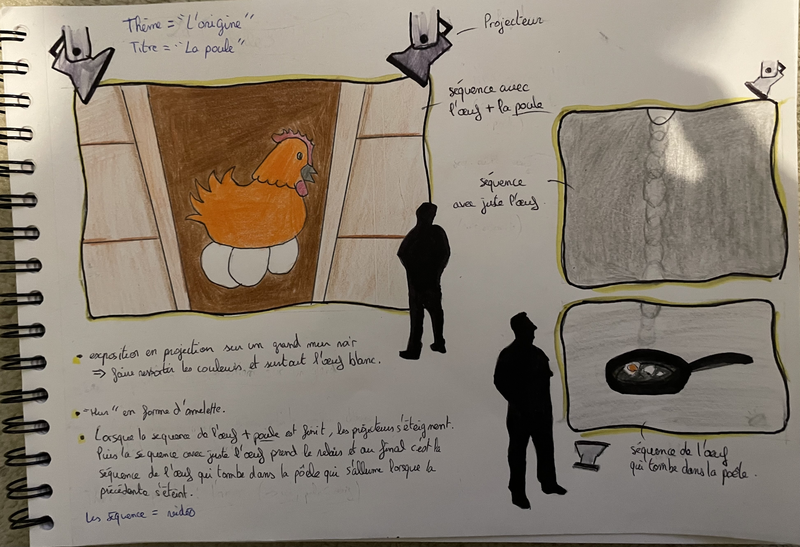 Thème = "L'origine"
Titre = "La poule"
Projecteur
séquence avec
l'œuf + la poule
séquence
avec juste l'œuf
• exposition en projection sur un grand mur noir
⇒ faire ressortir les couleurs et surtout l'œuf blanc.
• "Mur" en forme d'omelette.
• Lorsque la séquence de l'œuf + poule est finit, les projecteurs s'éteignent.
Puis la séquence avec juste l'œuf prend le relais et au final c'est la
séquence de l'œuf qui tombe dans la pôele qui s'allume lorsque la
précédente s'éteint.
Les séquence = vidéo
séquence de l'œuf
qui tombe dans la poêle.